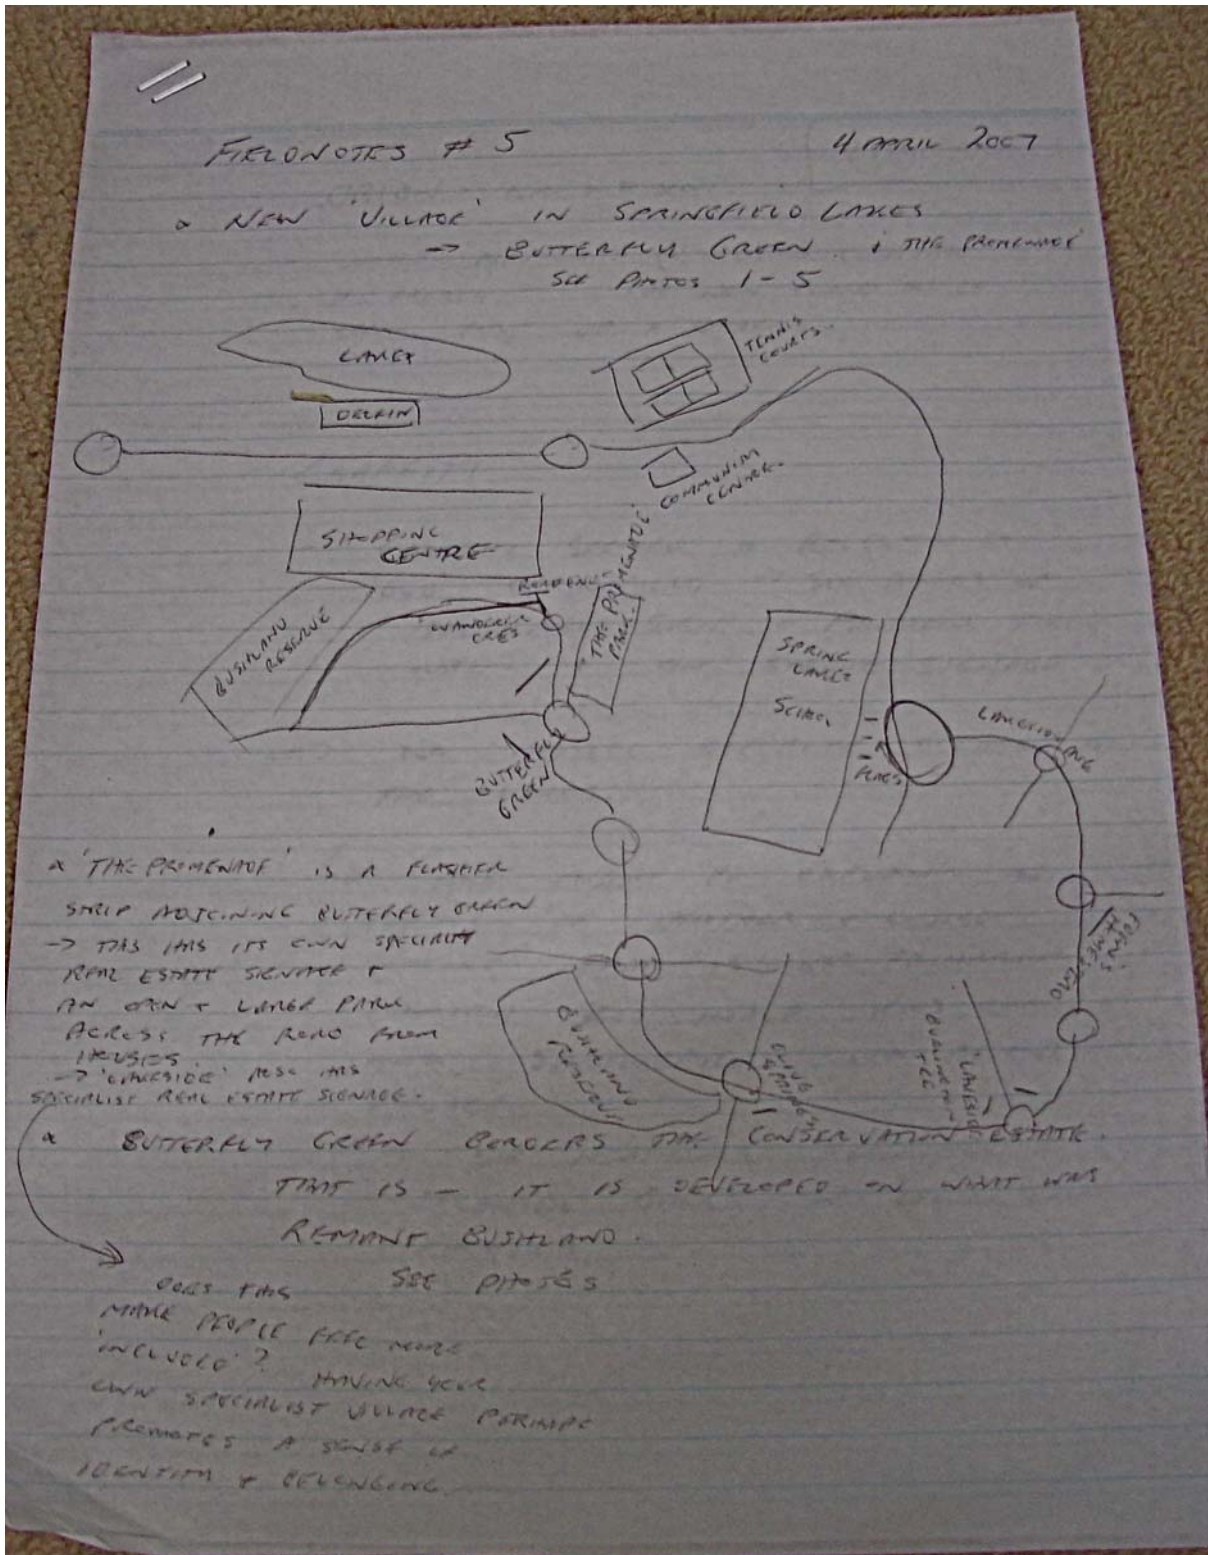 FIELDNOTES # 5
4 APRIL 2007
NEW 'VILLAGE' IN SPRINGFIELD LAKES
→ BUTTERFLY GREEN & 'THE PROMENADE'
SEE PHOTOS 1-5
LAKE
DELFIN
TENNIS
COURTS
COMMUNITY
CENTRE
SHOPPING
CENTRE
BUSHLAND
RESERVE
CRES
'THE PROMENADE'
PARK
BUTTERFLY
GREEN
SPRING
LAKE
SCHOOL
FLAGS
BUSHLAND
RESERVE
'LAKESIDE'
'THE PROMENADE' IS A FLASHER
STRIP ADJOINING BUTTERFLY GREEN
→ THIS HAS ITS OWN SPECIALITY
REAL ESTATE SIGNAGE +
AN OPEN + LARGE PARK
ACROSS THE ROAD FROM
HOUSES.
→ 'LAKESIDE' ALSO HAS
SPECIALIST REAL ESTATE SIGNAGE.
BUTTERFLY GREEN BORDERS THE CONSERVATION ESTATE.
THAT IS - IT IS DEVELOPED ON WHAT WAS
REMANT BUSHLAND.
SEE PHOTOS
DOES THIS
MAKE PEOPLE FEEL MORE
'INCLUDED'? HAVING YOUR
OWN SPECIALIST VILLAGE PERHAPS
PROMOTES A SENSE OF
IDENTITY + BELONGING.